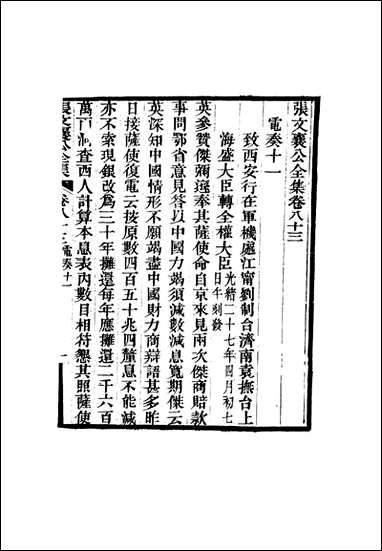 張文襄公全集卷八十三
電奏十一
致西安行在軍機處江甯劉制台濟南袁撫台上
海盛大臣轉全權大臣光緒二十七年四月初七日午刻發
英參贊傑彌遜奉其薩使命自京來見兩次傑商賠款
事問鄂省意見答以中國力竭須減數減息寬期傑云
英深知中國情形不願竭盡中國財力商辯語甚多昨
日接薩使復電云按原數四百五十兆四釐息不能減
亦不索現銀改爲三十年攤還每年應攤還二千六百
萬兩查西人計算本息表內數目相符懇其照薩使
張文襄公全集 卷八十三 電奏十一 一